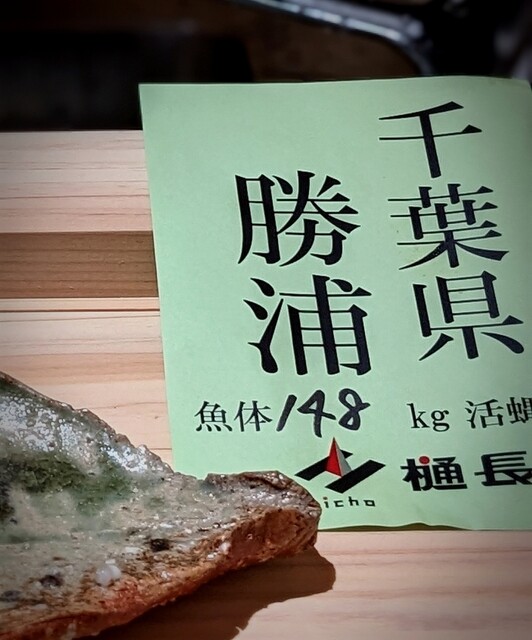 千葉県
勝浦
魚体148 kg 活蝿
icho 樋長